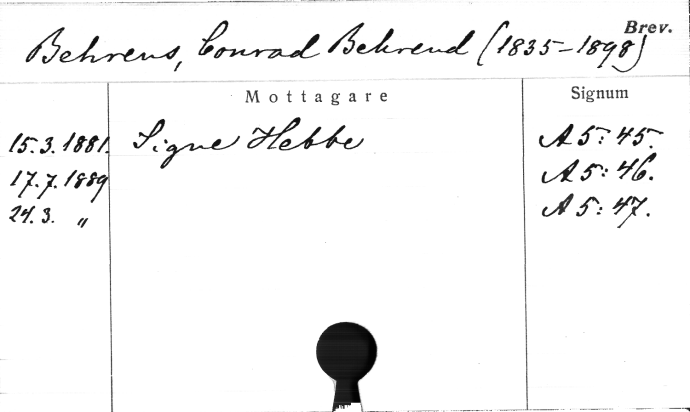 Brev.
Behrens, Conrad Behrend (1835-1898)
Mottagare Signum
15.3.1881. Signe Hebbe A 5: 45.
17.7.1889 A 5: 46.
24.3. " A 5: 47.